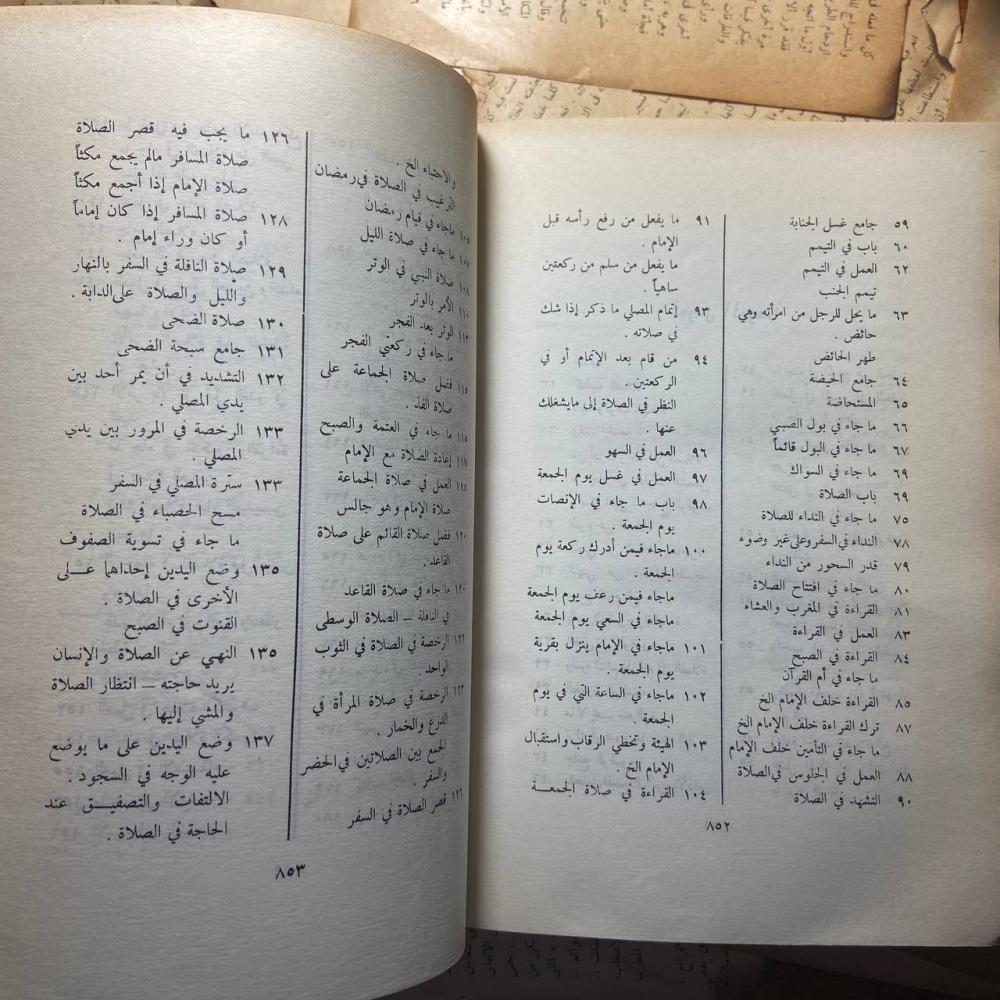 ٥٩ جامع غسل الجنابة
٦٠ باب في التيمم
٦٢ العمل في التيمم
تيمم الجنب
٦٣ ما يحل للرجل من امرأته وهي
حائض .
طهر الحائض
٦٤ جامع الحيضة
٦٥ المستحاضة
٦٦ ما جاء في بول الصبي
٦٧ ما جاء في البول قائماً
٦٩ ما جاء في السواك
٦٩ باب الصلاة
٧٥ ما جاء في النداء للصلاة
٧٨ النداء في السفر وعلى غير وضوء
٧٩ قدر السحور من النداء
٨٠ ما جاء في افتتاح الصلاة
٨١ القراءة في المغرب والعشاء
٨٣ العمل في القراءة
٨٤ القراءة في الصبح
ما جاء في أم القرآن
٨٥ القراءة خلف الإمام الخ
٨٧ ترك القراءة خلف الإمام الخ
ما جاء في التأمين خلف الإمام
٨٨ العمل في الجلوس في الصلاة
٩٠ التشهد في الصلاة
٩١ ما يفعل من رفع رأسه قبل
الإمام .
ما يفعل من سلم من ركعتين
ساهياً .
٩٣ إتمام المصلي ما ذكر إذا شك
في صلاته .
٩٤ من قام بعد الإتمام أو في
الركعتين .
النظر في الصلاة إلى مايشغلك
عنها .
٩٦ العمل في السهو
٩٧ العمل في غسل يوم الجمعة
٩٨ باب ما جاء في الإنصات
يوم الجمعة .
١٠٠ ماجاء فيمن أدرك ركعة يوم
الجمعة .
ماجاء فيمن رعف يوم الجمعة
ماجاء في السعي يوم الجمعة
١٠١ ماجاء في الإمام ينزل بقرية
يوم الجمعة .
١٠٢ ماجاء في الساعة التي في يوم
الجمعة .
١٠٣ الهيئة وتخطي الرقاب واستقبال
الإمام الخ .
١٠٤ القراءة في صلاة الجمعة
٨٥٢
والاحتباء الخ .
الترغيب في الصلاة في رمضان
١٠٥ ماجاء في قيام رمضان
١٠٧ ما جاء في صلاة الليل
١٠٨ صلاة النبي في الوتر
١١٠ الأمر بالوتر
١١٣ الوتر بعد الفجر
ما جاء في ركعتي الفجر
١١٥ فضل صلاة الجماعة على
صلاة الفذ .
١١٥ ما جاء في العتمة والصبح
١١٧ إعادة الصلاة مع الإمام
١١٨ العمل في صلاة الجماعة
صلاة الإمام وهو جالس
١٢٠ فضل صلاة القائم على صلاة
القاعد .
١٢٠ ما جاء في صلاة القاعد
في النافلة ــ الصلاة الوسطى
١٢٢ الرخصة في الصلاة في الثوب
الواحد .
١٢٣ الرخصة في صلاة المرأة في
الدرع والخمار .
الجمع بين الصلاتين في الحضر
والسفر .
١٢٦ قصر الصلاة في السفر
١٢٦ ما يجب فيه قصر الصلاة
صلاة المسافر مالم يجمع مكثاً
صلاة الإمام إذا أجمع مكثاً
١٢٨ صلاة المسافر إذا كان إماماً
أو كان وراء إمام .
١٢٩ صلاة النافلة في السفر بالنهار
والليل والصلاة على الدابة .
١٣٠ صلاة الضحى
١٣١ جامع سبحة الضحى
١٣٢ التشديد في أن يمر أحد بين
يدي المصلي .
١٣٣ الرخصة في المرور بين يدي
المصلي .
١٣٣ سترة المصلي في السفر
مسح الحصباء في الصلاة
ما جاء في تسوية الصفوف
١٣٥ وضع اليدين إحداهما عــلى
الأخرى في الصلاة .
القنوت في الصبح
١٣٥ النهي عن الصلاة والإنسان
يريد حاجته ــ انتظار الصلاة
والمشي إليها .
١٣٧ وضع اليدين على ما يوضع
عليه الوجه في السجود .
الالتفات والتصفيـق عند
الحاجة في الصلاة .
٨٥٣